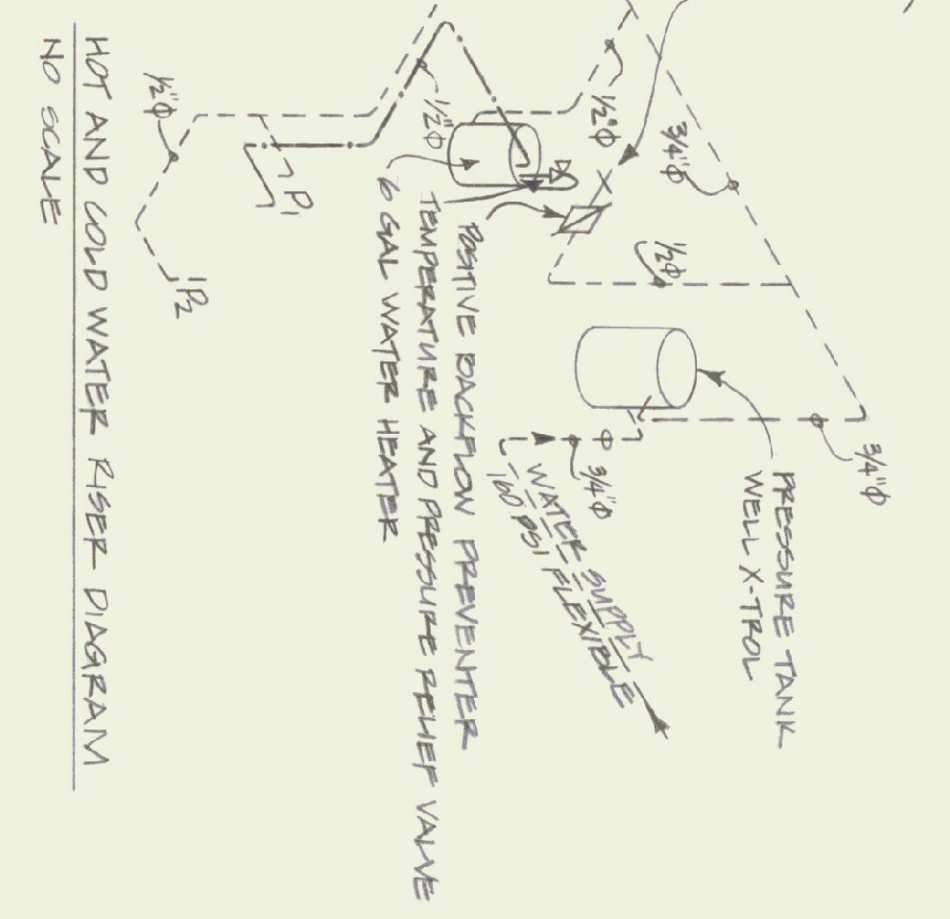 3/4"Φ
PRESSURE TANK
WELL X-TROL
3/4"Φ
1/2Φ
1/2"Φ
3/4"Φ
WATER SUPPLY
160 PSI FLEXIBLE
POSITIVE BACKFLOW PREVENTER
TEMPERATURE AND PRESSURE RELIEF VALVE
6 GAL WATER HEATER
1/2"Φ
P1
P2
1/2"Φ
HOT AND COLD WATER RISER DIAGRAM
NO SCALE